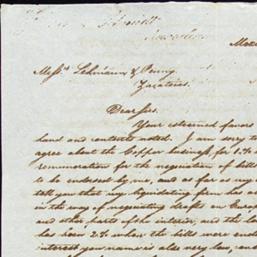 Messrs Lehmann & Penny.
Zacatecas.
Dear Sirs.
Your esteemed favors
hand and contents noted. I am sorry to
agree about the Copper business for 1/2%
remuneration for the negociation of bills
to be endorsed by me, and as far as my
tell you that our liquidating firm has
in the way of negociating drafts on Europe
and other parts of the interior, and the
has been 2% unless the bills were
interest you name is also very low, and